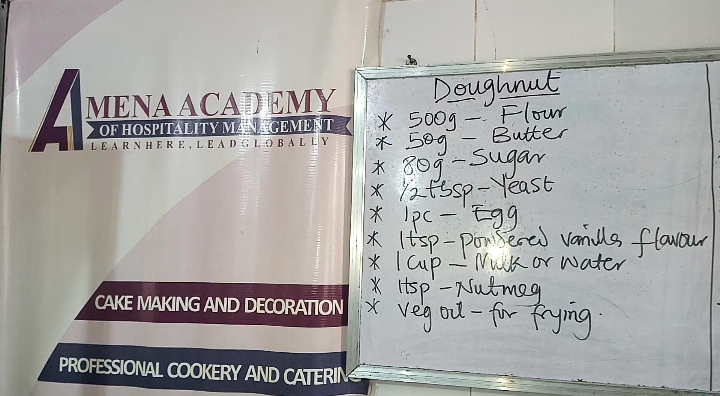 AMENA ACADEMY
OF HOSPITALITY MANAGEMENT
LEARN HERE, LEAD GLOBALLY
CAKE MAKING AND DECORATION
PROFESSIONAL COOKERY AND CATERING
Doughnut
* 500g - Flour
* 50g - Butter
* 80g - Sugar
* 1/2 tbsp - Yeast
* 1pc - Egg
* 1tsp - powdered vanilla flavour
* 1 Cup - Milk or water
* 1tsp - Nutmeg
* Veg oil - for frying.